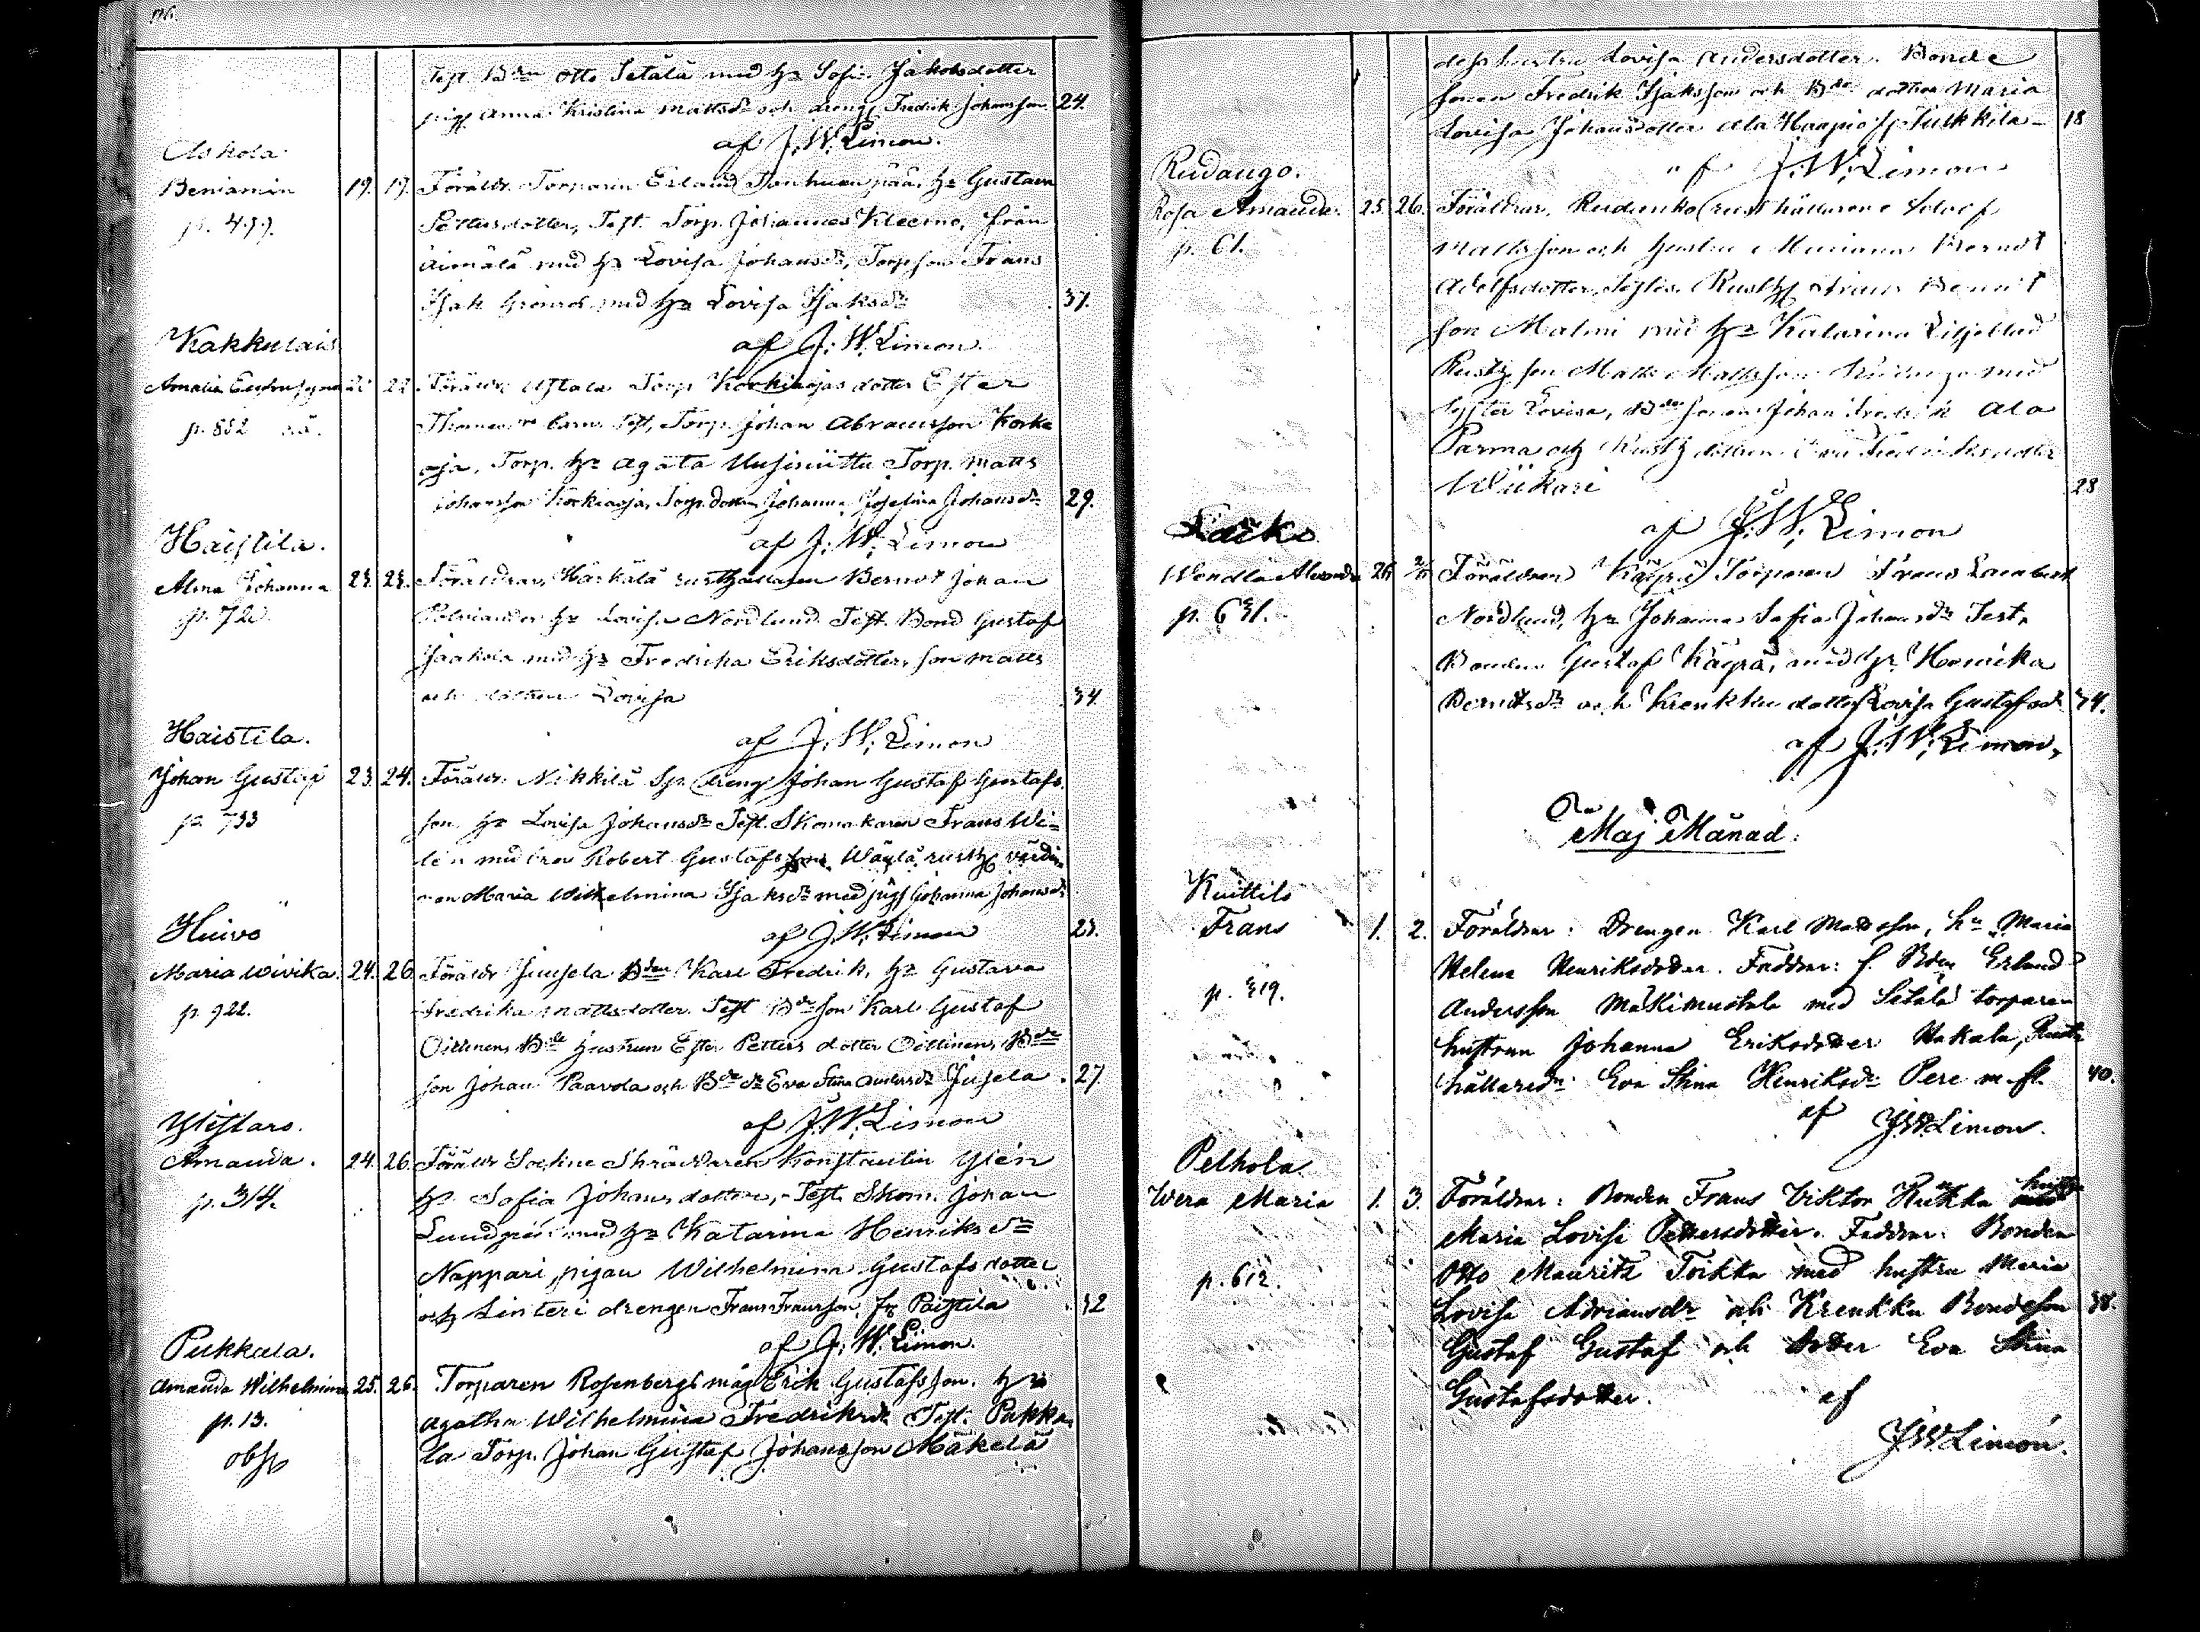 Test. Bden Otto Setälä med hu Sofia Jakobsdotter
pig. Anna Kristina Mattsdr och dreng. Fredrik Johansson 24.
af J. W. Limon.
Askola
Beniamin 19. 19. Föräldr. Torparen Erland hu Gustava
p. 499.
Pettersdotter, Test. Torp. Johannes Kleemo, från
Äimälä med hu Lovisa Johansdr, Torp son Frans
Isak Grönros med hu Lovisa Isaksdr 37.
af J. W. Limon.
Kakkulais
Amalia 22. Föräldr. Torp. Korkiaojas dotter Ester
p. 852
barn. Test. Torp. Johan Abramsson Korkia
oja, Torp. hu Agata Uusiniittu Torp. Matts
Johansson Korkiaoja, Torp. dottern Johanna Josefina Johansdr 29.
af J. W. Limon
Haistila.
Alma Johanna 23. 23. Föräldrar, Härkälä rusthållaren Berndt Johan
p. 72
hu Lovisa Nordlund. Test. Bond Gustaf
Jaakola med hu Fredrika Eriksdotter, son Matts
och dottren Lovisa 34.
af J. W. Limon
Haistila.
Johan Gustaf 23. 24. Föräldr. Nikkilä dreng Johan Gustaf Gustafs
p. 733
son hu Lovisa Johansdr Test. Skomakaren Frans Wi-
lén med bror Robert Gustafsson, Wäylä rusth. värdin
nan Maria Wilhelmina Isaksdr med pig. Johanna Johansdr
af J. W. Limon 23.
Huivo
Maria Wivika. 24. 26. Föräldr Juusela Bden Karl Fredrik, hu Gustava
p. 922.
Fredrika Mattsdotter Test Bde son Karl Gustaf
Oittinen, Bde hustrun Ester Petters dotter Oittinen, Bde
son Johan Paavola och Bde dr Eva Stina Juusela. 27
af J. W. Limon
Ylistaro.
Amanda. 24. 26. Föräldr Skräddaren Konstantin Glén
p. 314.
hu Sofia Johansdotter, Test. Skom. Johan
Lundgrén med hu Katarina Henriksdr
Nappari, pigan Wilhelmina Gustafsdotter
och Linteri drengen Frans Fransson fr. Paistila 32
af J. W. Limon.
Pukkala.
Amanda Wilhelmina 25. 26. Torparen Rosenbergs måg Erik Gustafsson. hu
p. 13.
Agatha Wilhelmina Fredriksdr Test. Pukka
la Torp. Johan Gustaf Johansson Mäkelä
obs
dess hustru Lovisa Andersdotter. Bonde
sonen Fredrik Isaksson och Bde dottren Maria
Lovisa Johansdotter Ala Haapio Tulkkila 18
af J. W. Limon
Rudango.
Rosa Amanda. 25. 26. Föräldrar, Rudanko rusthållaren Adolf
p. 61.
Mattsson och hustru Mariana Berndt
Adolfsdotter, Rusth. Frans Berndt
son Malmi med hu Katarina Liljeblad
Rusth. son Matts Mattsson Rudango med
syster Lovisa, Bde sonen Johan Fredrik Ala
Parma och Rusth dottren Eva Fredriksdotter
Wiikari 28
af J. W. Limon
Laiko
Wendla Alexandra 26 Föräldrar Käyrä Torparen Frans Lambert
p. 631.
Nordlund, hu Johanna Sofia Johansdr Test.
Bonden Gustaf Käyrä, med hu Henrika
Berndtsdr och Krenkku dotter Lovisa Gustafsdr 34.
af J. W. Limon,
Maj Månad.
Kuittilo
Frans 1. 2. Föräldrar: Drengen Karl Mattsson, hu Maria
Helena Henriksdotter. Faddrar: f. Bden Erland
p. 319.
Andersson Mäkimustala med Setälä torparen
hustrun Johanna Eriksdotter Hakala, Rust-
hållaredr Eva Stina Henriksdr Pere m. fl. 40.
af
J W. Limon.
Pelhola
Wera Maria 1. 3. Föräldrar: Bonden Frans Viktor Hukka hustru
Maria Lovisa Pettersdotter. Faddrar: Bonden
p. 612.
Otto Mauritz Toikka med hustru Maria
Lovisa Adriansdr och Krenkku Bondeson 38.
Gustaf Gustaf och dotter Eva Stina
Gustafsdotter. af
J W. Limon.